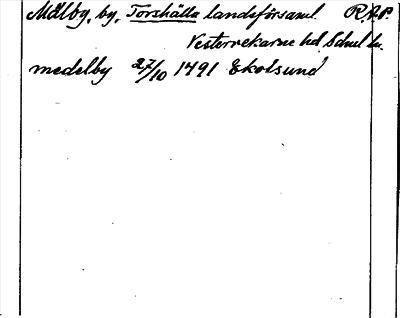 Mälby, by, Torshälla landsförsaml. R.A.P.
Vesterrekarne hd. Södml. ln.
medelby 27/10 1491 Ekolsund